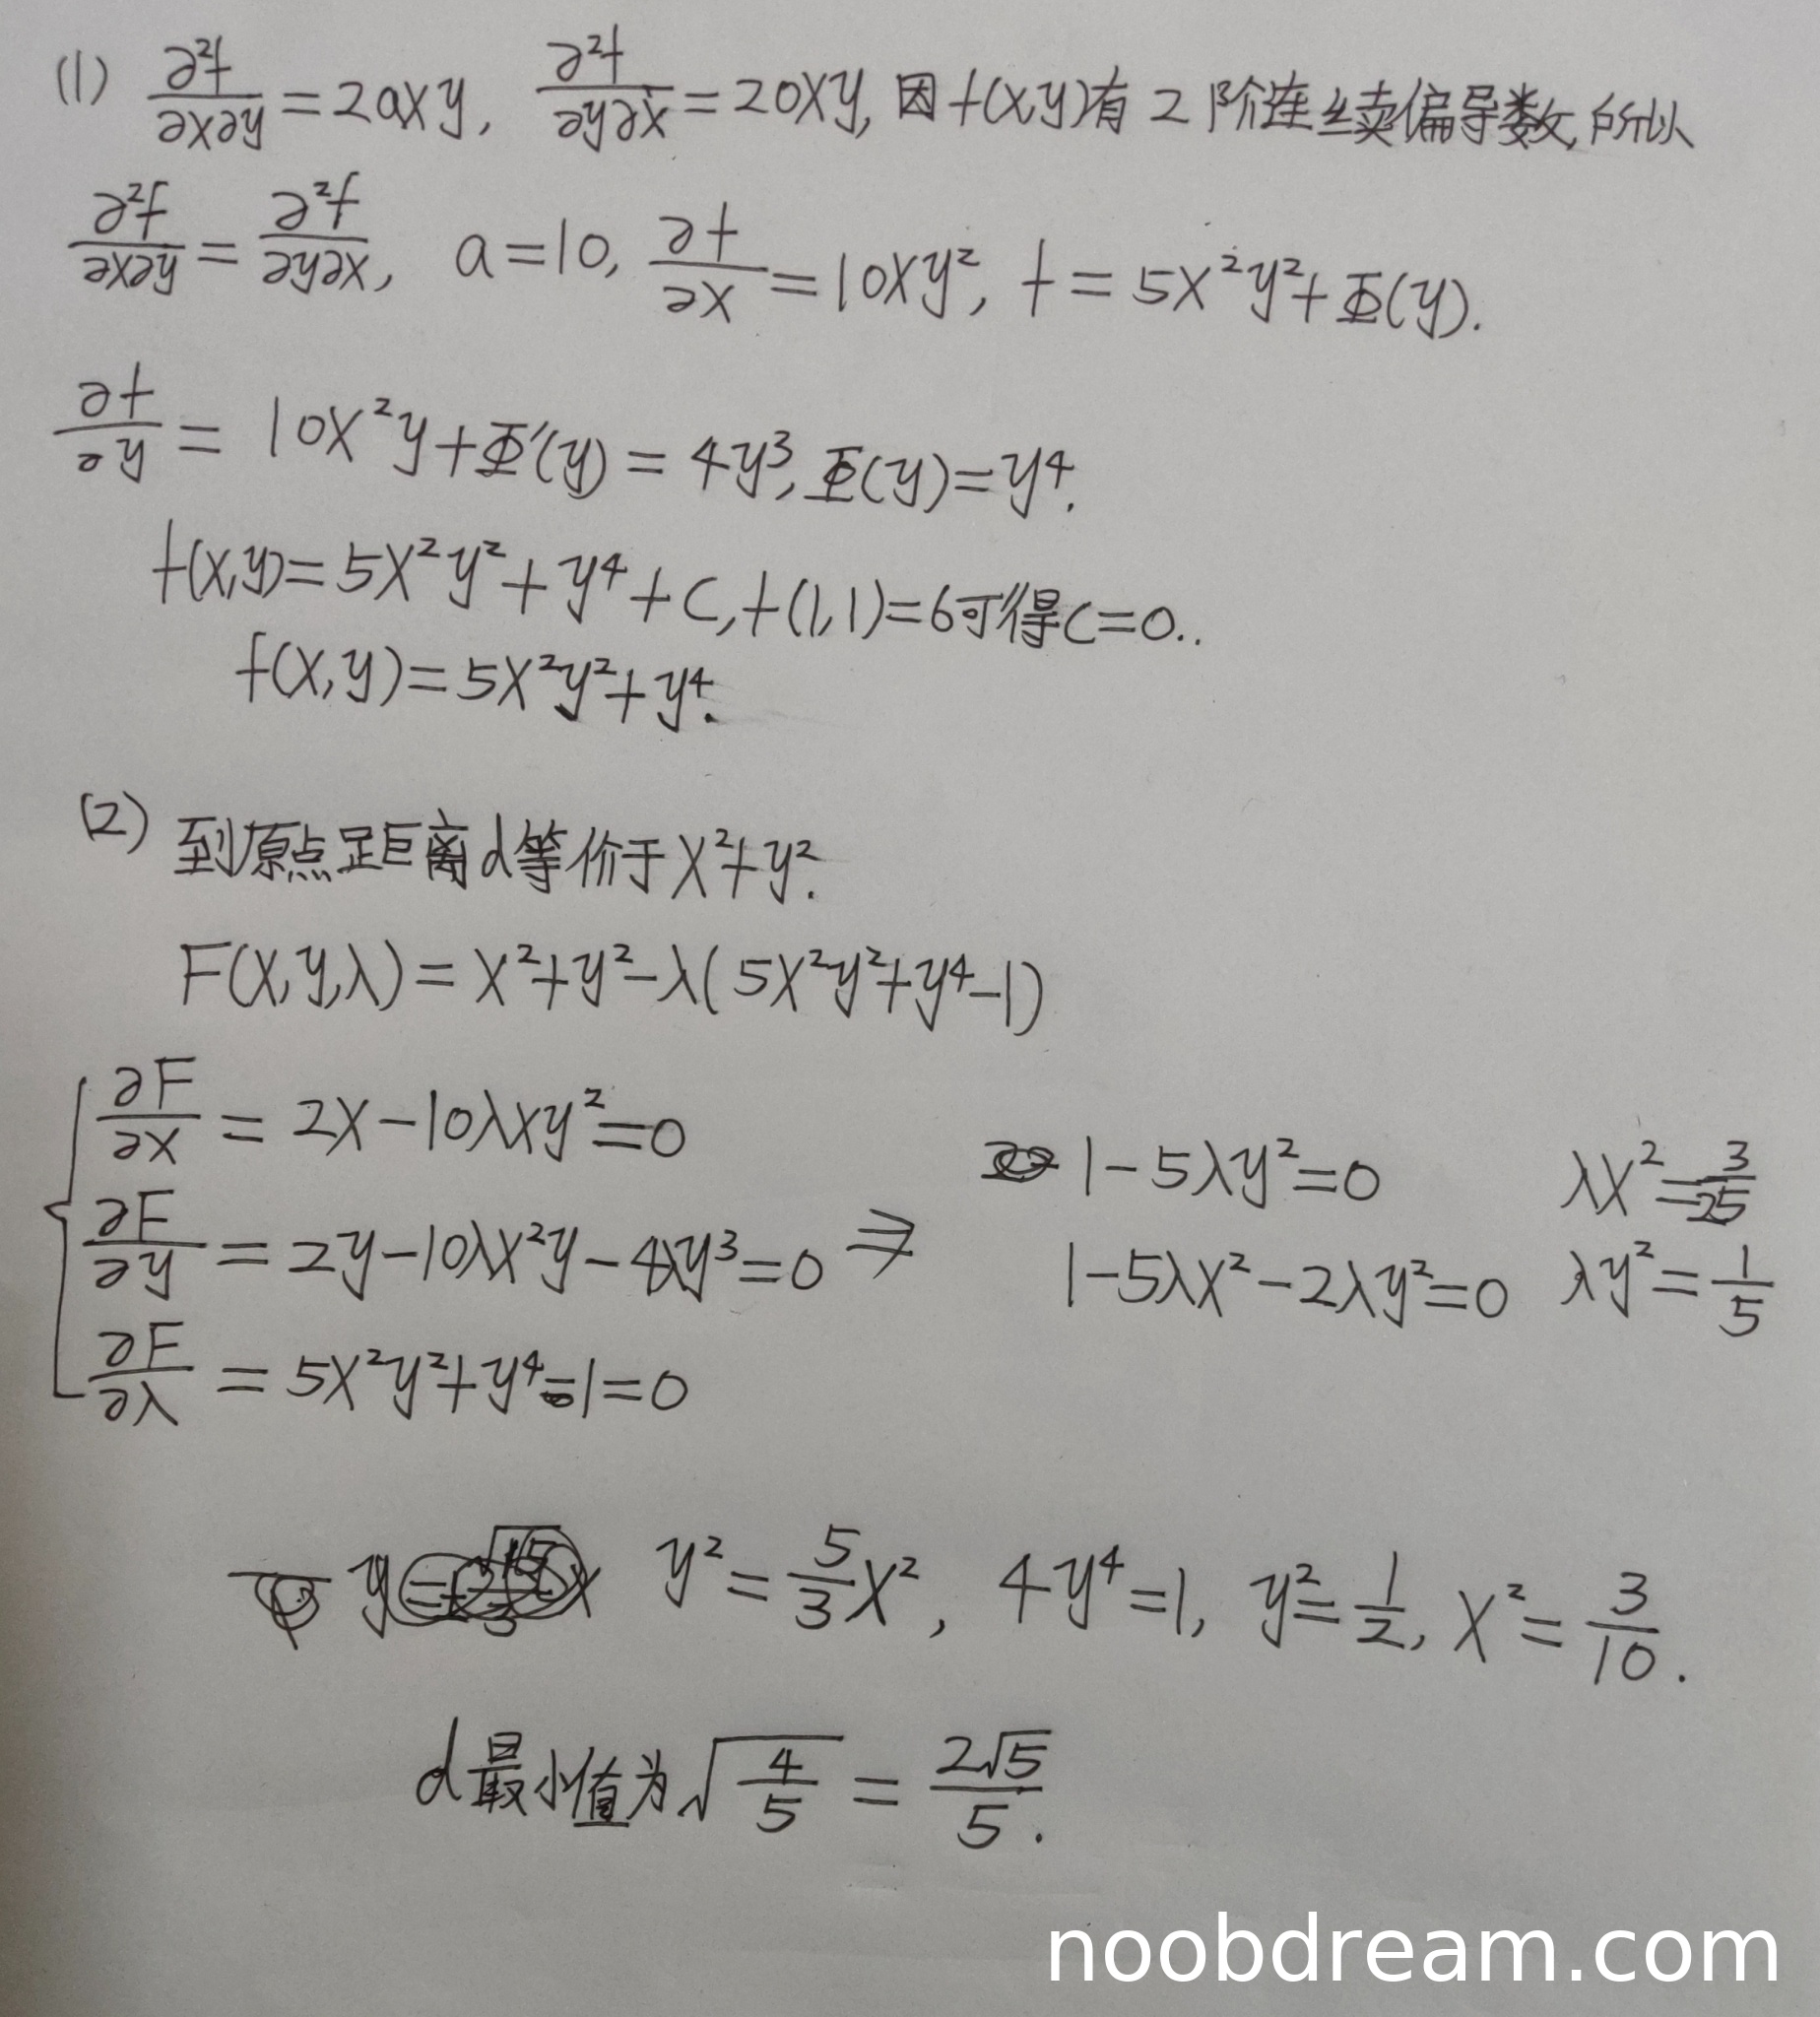 (1) ∂²f/∂x∂y = 2axy, ∂²f/∂y∂x = 20xy, 因f(x,y)有2阶连续偏导数,所以
∂²f/∂x∂y = ∂²f/∂y∂x, a=10, ∂f/∂x = 10xy², f = 5x²y²+Φ(y).
∂f/∂y = 10x²y+Φ'(y) = 4y³, Φ(y)=y⁴.
f(x,y)=5x²y²+y⁴+C, f(1,1)=6可得C=0..
f(x,y)=5x²y²+y⁴.
(2) 到原点距离d等价于x²+y².
F(x,y,λ) = x²+y²-λ(5x²y²+y⁴-1)
∂F/∂x = 2x-10λxy²=0
∂F/∂y = 2y-10λx²y-4λy³=0 ⇒
∂F/∂λ = 5x²y²+y⁴-1=0
1-5λy²=0 λx²=3/25
1-5λx²-2λy²=0 λy²=1/5
y y²=5/3x², 4y⁴=1, y²=1/2, x²=3/10.
d最小值为√(4/5) = 2√5/5.
noobdream.com